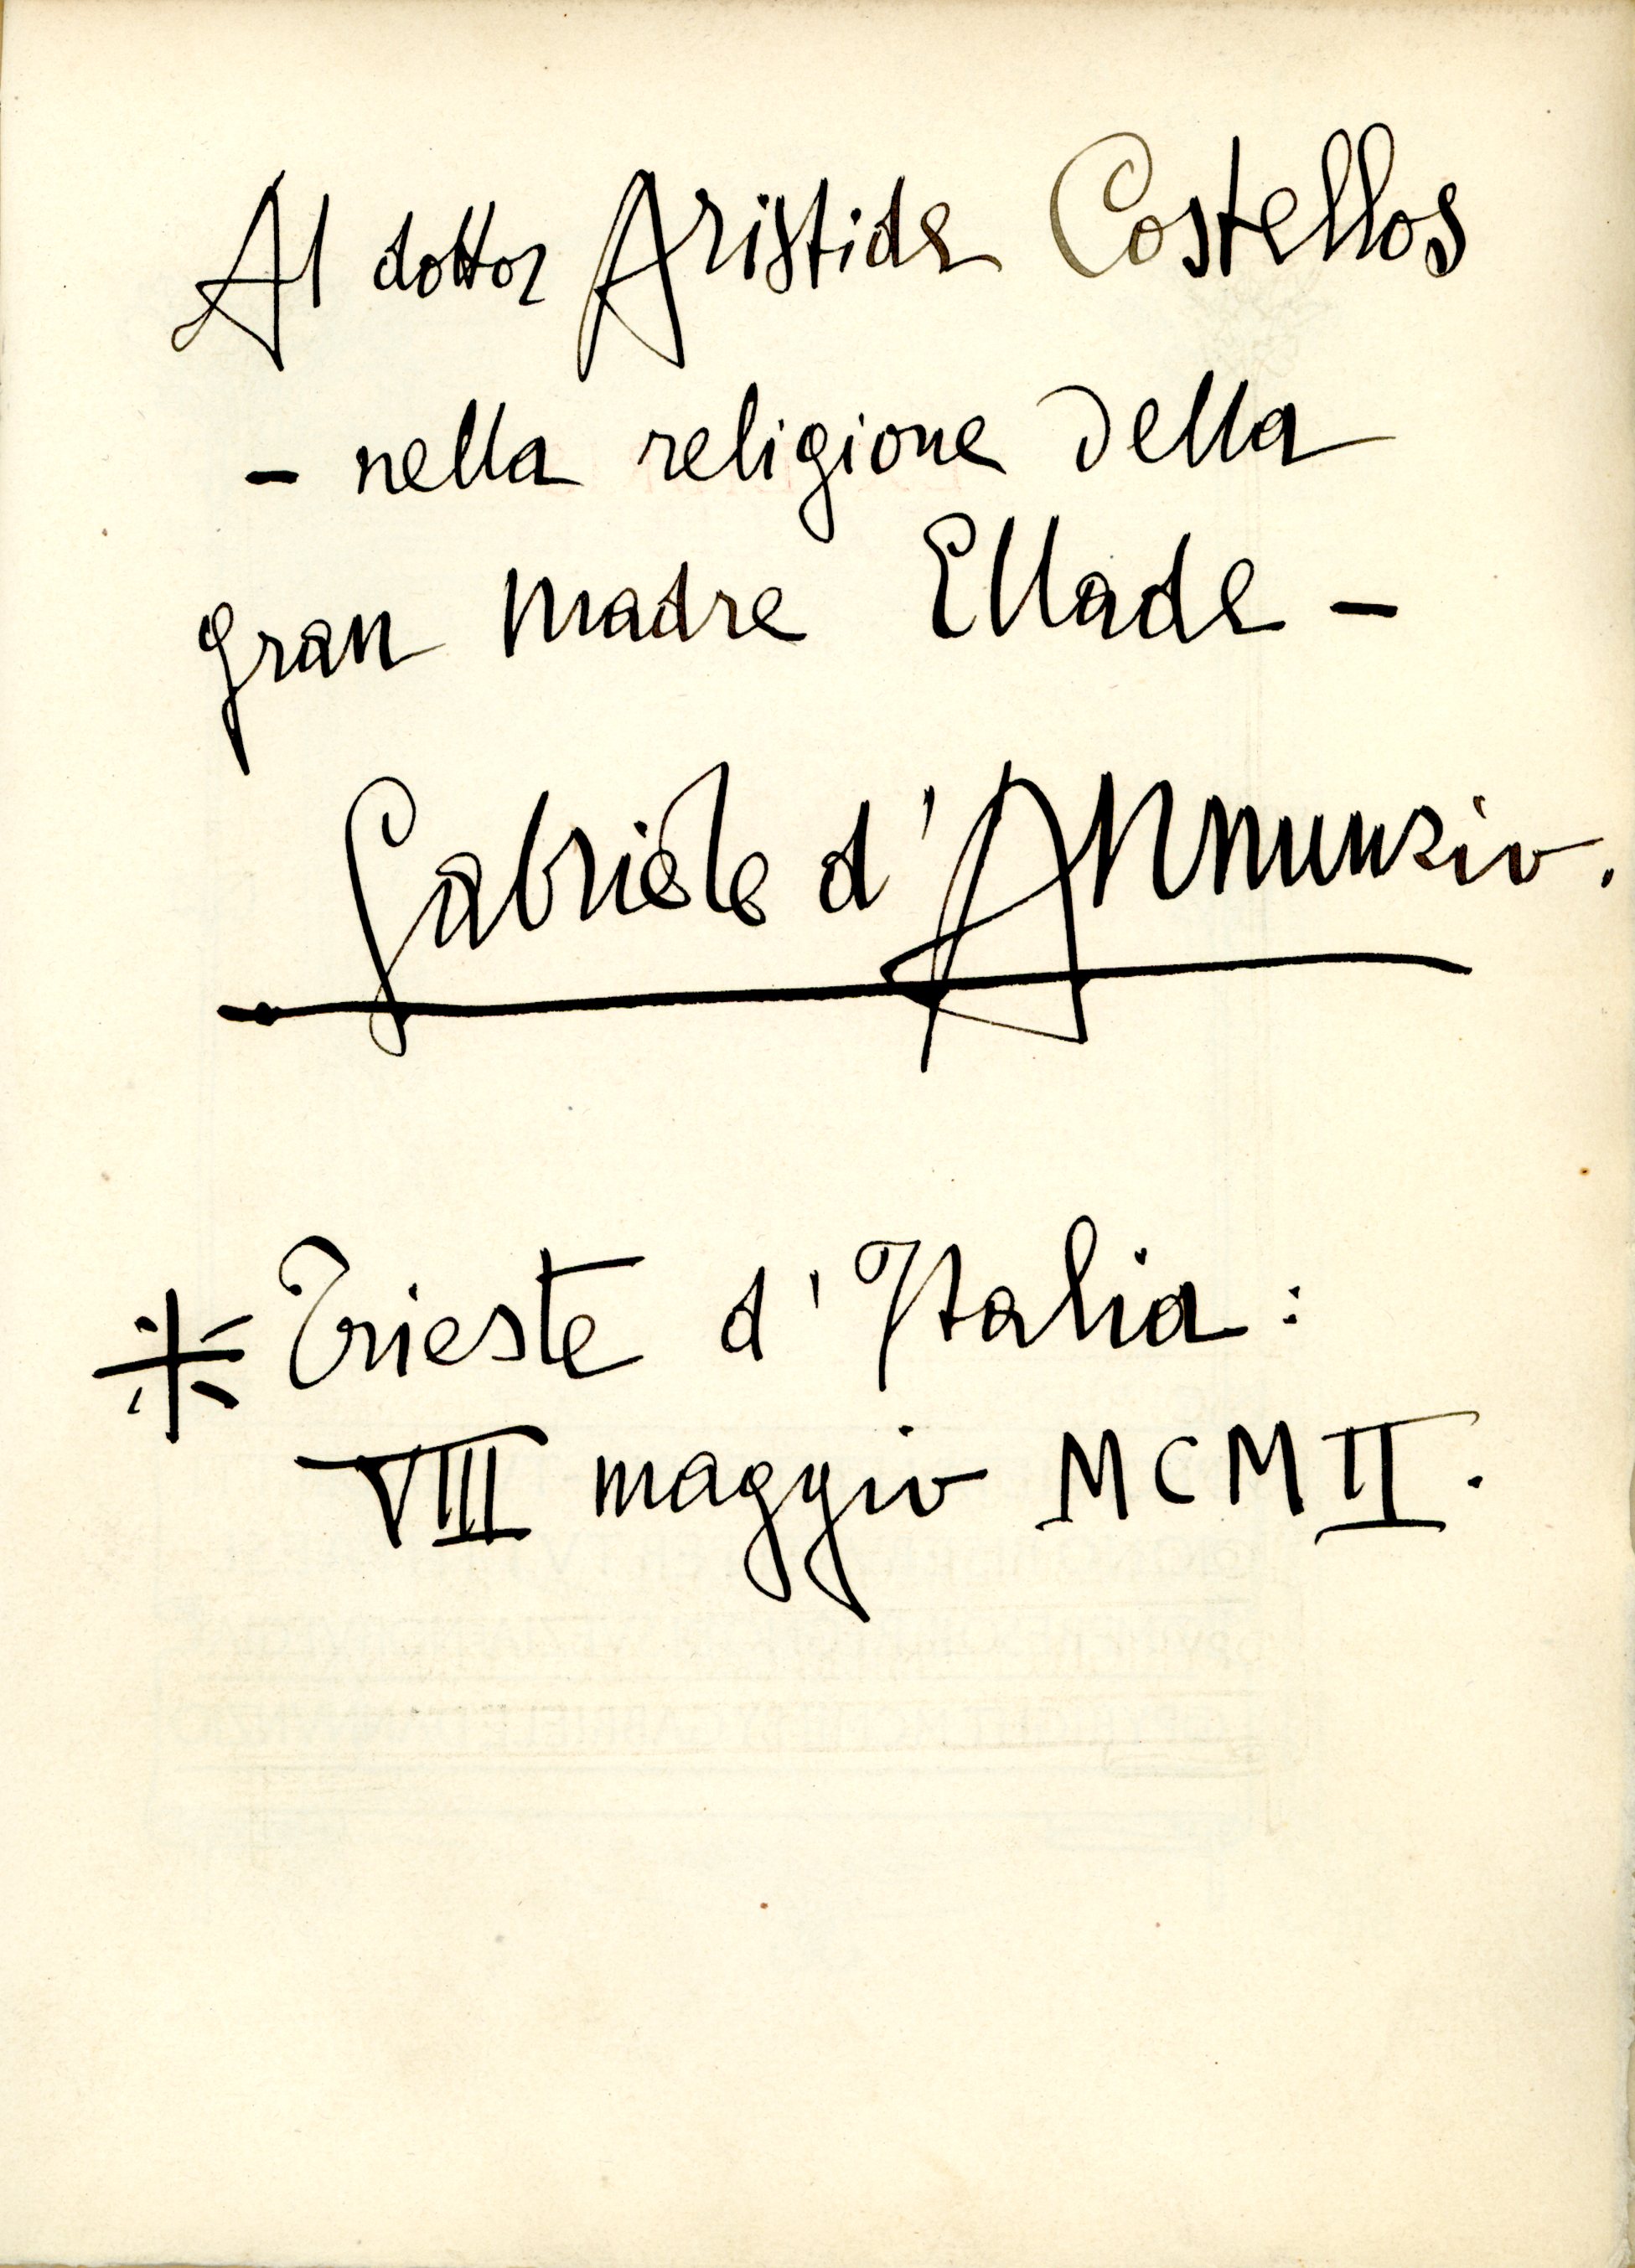 Al dottor Aristide Costellos
- nella religione della
gran madre Ellade -
Gabriele d'Annunzio.
* Trieste d'Italia:
VIII maggio MCMII.